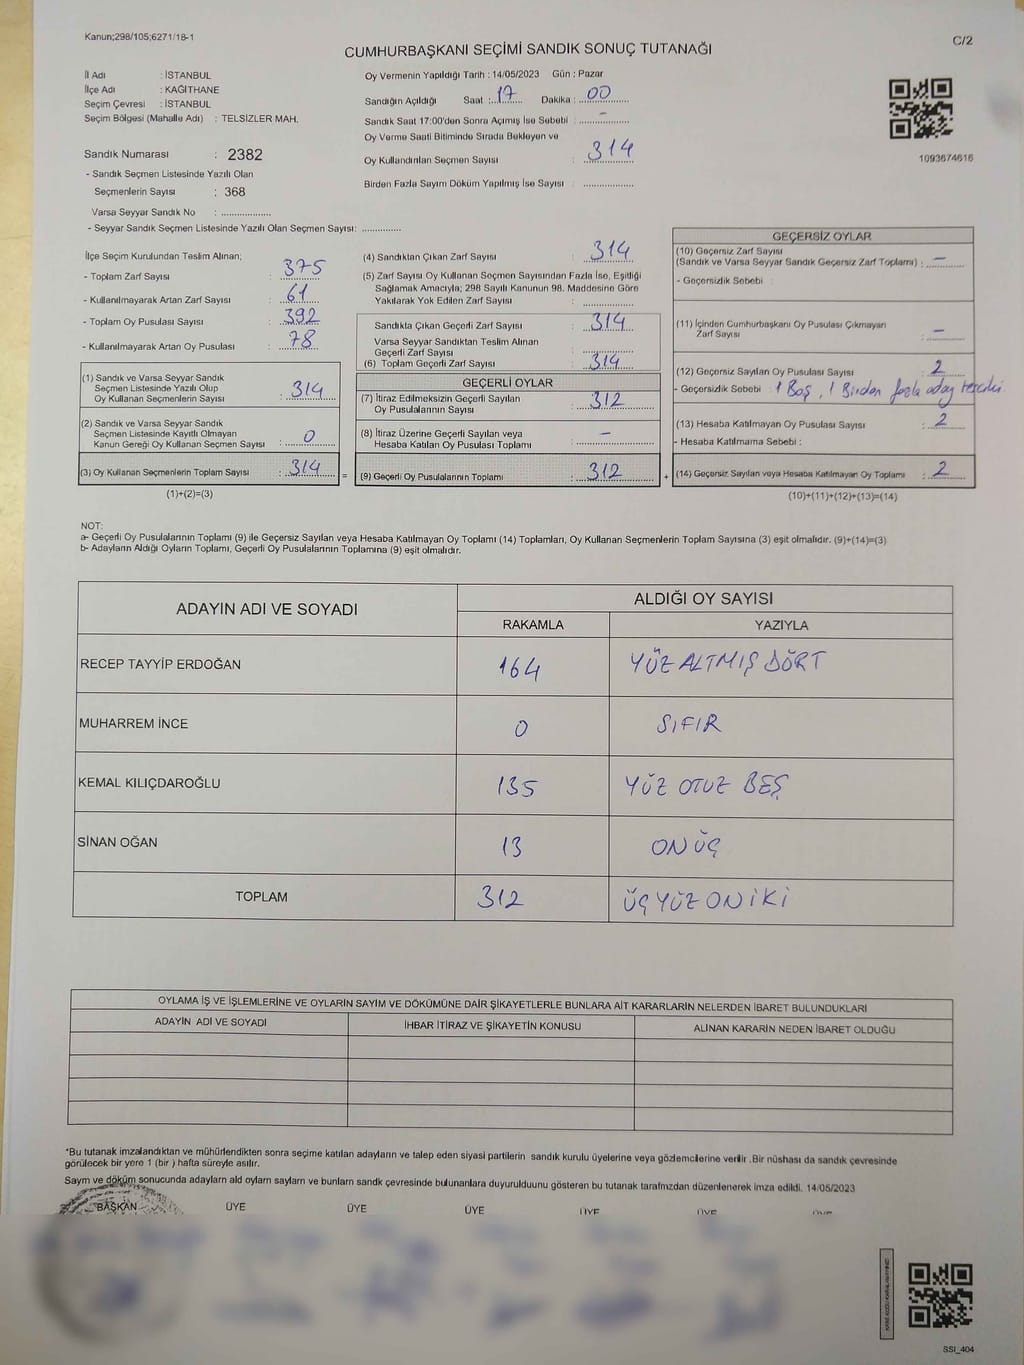 Kanun;298/105;6271/18-1
C/2
CUMHURBAŞKANI SEÇİMİ SANDIK SONUÇ TUTANAĞI
İl Adı : İSTANBUL
İlçe Adı : KAĞITHANE
Seçim Çevresi : İSTANBUL
Seçim Bölgesi (Mahalle Adı) : TELSİZLER MAH.
Sandık Numarası : 2382
- Sandık Seçmen Listesinde Yazılı Olan
Seçmenlerin Sayısı : 368
Varsa Seyyar Sandık No : ...................
- Seyyar Sandık Seçmen Listesinde Yazılı Olan Seçmen Sayısı: ..............
Oy Vermenin Yapıldığı Tarih : 14/05/2023 Gün : Pazar
Sandığın Açıldığı Saat : 17 Dakika : 00
Sandık Saat 17:00'den Sonra Açımış İse Sebebi : -
Oy Verme Saati Bitiminde Sırada Bekleyen ve
Oy Kullandırılan Seçmen Sayısı : 314
Birden Fazla Sayım Döküm Yapılmış İse Sayısı : ..................
1093674616
İlçe Seçim Kurulundan Teslim Alınan;
- Toplam Zarf Sayısı : 375
- Kullanılmayarak Artan Zarf Sayısı : 61
- Toplam Oy Pusulası Sayısı : 392
- Kullanılmayarak Artan Oy Pusulası : 78
(1) Sandık ve Varsa Seyyar Sandık
Seçmen Listesinde Yazılı Olup
Oy Kullanan Seçmenlerin Sayısı : 314
(2) Sandık ve Varsa Seyyar Sandık
Seçmen Listesinde Kayıtlı Olmayan
Kanun Gereği Oy Kullanan Seçmen Sayısı : 0
(3) Oy Kullanan Seçmenlerin Toplam Sayısı : 314 =
(1)+(2)=(3)
(4) Sandıktan Çıkan Zarf Sayısı : 314
(5) Zarf Sayısı Oy Kullanan Seçmen Sayısından Fazla İse, Eşitliği
Sağlamak Amacıyla; 298 Sayılı Kanunun 98. Maddesine Göre
Yakılarak Yok Edilen Zarf Sayısı : ..................
Sandıkta Çıkan Geçerli Zarf Sayısı : 314
Varsa Seyyar Sandıktan Teslim Alınan
Geçerli Zarf Sayısı : ..................
(6) Toplam Geçerli Zarf Sayısı : 314
GEÇERLİ OYLAR
(7) İtiraz Edilmeksizin Geçerli Sayılan
Oy Pusulalarının Sayısı : 312
(8) İtiraz Üzerine Geçerli Sayılan veya
Hesaba Katılan Oy Pusulası Toplamı : -
(9) Geçerli Oy Pusulalarının Toplamı : 312 +
GEÇERSİZ OYLAR
(10) Geçersiz Zarf Sayısı
(Sandık ve Varsa Seyyar Sandık Geçersiz Zarf Toplamı) : -
- Geçersizlik Sebebi :
(11) İçinden Cumhurbaşkanı Oy Pusulası Çıkmayan
Zarf Sayısı : -
(12) Geçersiz Sayılan Oy Pusulası Sayısı : 2
- Geçersizlik Sebebi : 1 Boş, 1 Birden fazla aday tercihi.
(13) Hesaba Katılmayan Oy Pusulası Sayısı : 2
- Hesaba Katılmama Sebebi :
(14) Geçersiz Sayılan veya Hesaba Katılmayan Oy Toplamı : 2
(10)+(11)+(12)+(13)=(14)
NOT:
a- Geçerli Oy Pusulalarının Toplamı (9) ile Geçersiz Sayılan veya Hesaba Katılmayan Oy Toplamı (14) Toplamları, Oy Kullanan Seçmenlerin Toplam Sayısına (3) eşit olmalıdır. (9)+(14)=(3)
b- Adayların Aldığı Oyların Toplamı, Geçerli Oy Pusulalarının Toplamına (9) eşit olmalıdır.
ADAYIN ADI VE SOYADI
ALDIĞI OY SAYISI
RAKAMLA YAZIYLA
RECEP TAYYİP ERDOĞAN 164 YÜZ ALTMIŞ DÖRT
MUHARREM İNCE 0 SIFIR
KEMAL KILIÇDAROĞLU 135 YÜZ OTUZ BEŞ
SİNAN OĞAN 13 ON ÜÇ
TOPLAM 312 ÜÇ YÜZ ON İKİ
OYLAMA İŞ VE İŞLEMLERİNE VE OYLARIN SAYIM VE DÖKÜMÜNE DAİR ŞİKAYETLERLE BUNLARA AİT KARARLARIN NELERDEN İBARET BULUNDUKLARI
ADAYIN ADI VE SOYADI İHBAR İTİRAZ VE ŞİKAYETİN KONUSU ALINAN KARARIN NEDEN İBARET OLDUĞU
*Bu tutanak imzalandıktan ve mühürlendikten sonra seçime katılan adayların ve talep eden siyasi partilerin sandık kurulu üyelerine veya gözlemcilerine verilir .Bir nüshası da sandık çevresinde
görülecek bir yere 1 (bir ) hafta süreyle asılır.
Sayım ve döküm sonucunda adayların ald oyların sayları ve bunların sandk çevresinde bulunanlara duyurulduunu gösteren bu tutanak tarafmzdan düzenlenerek imza edildi. 14/05/2023
BAŞKAN ÜYE ÜYE ÜYE ÜYE ÜYE ÜYE
SSI_404